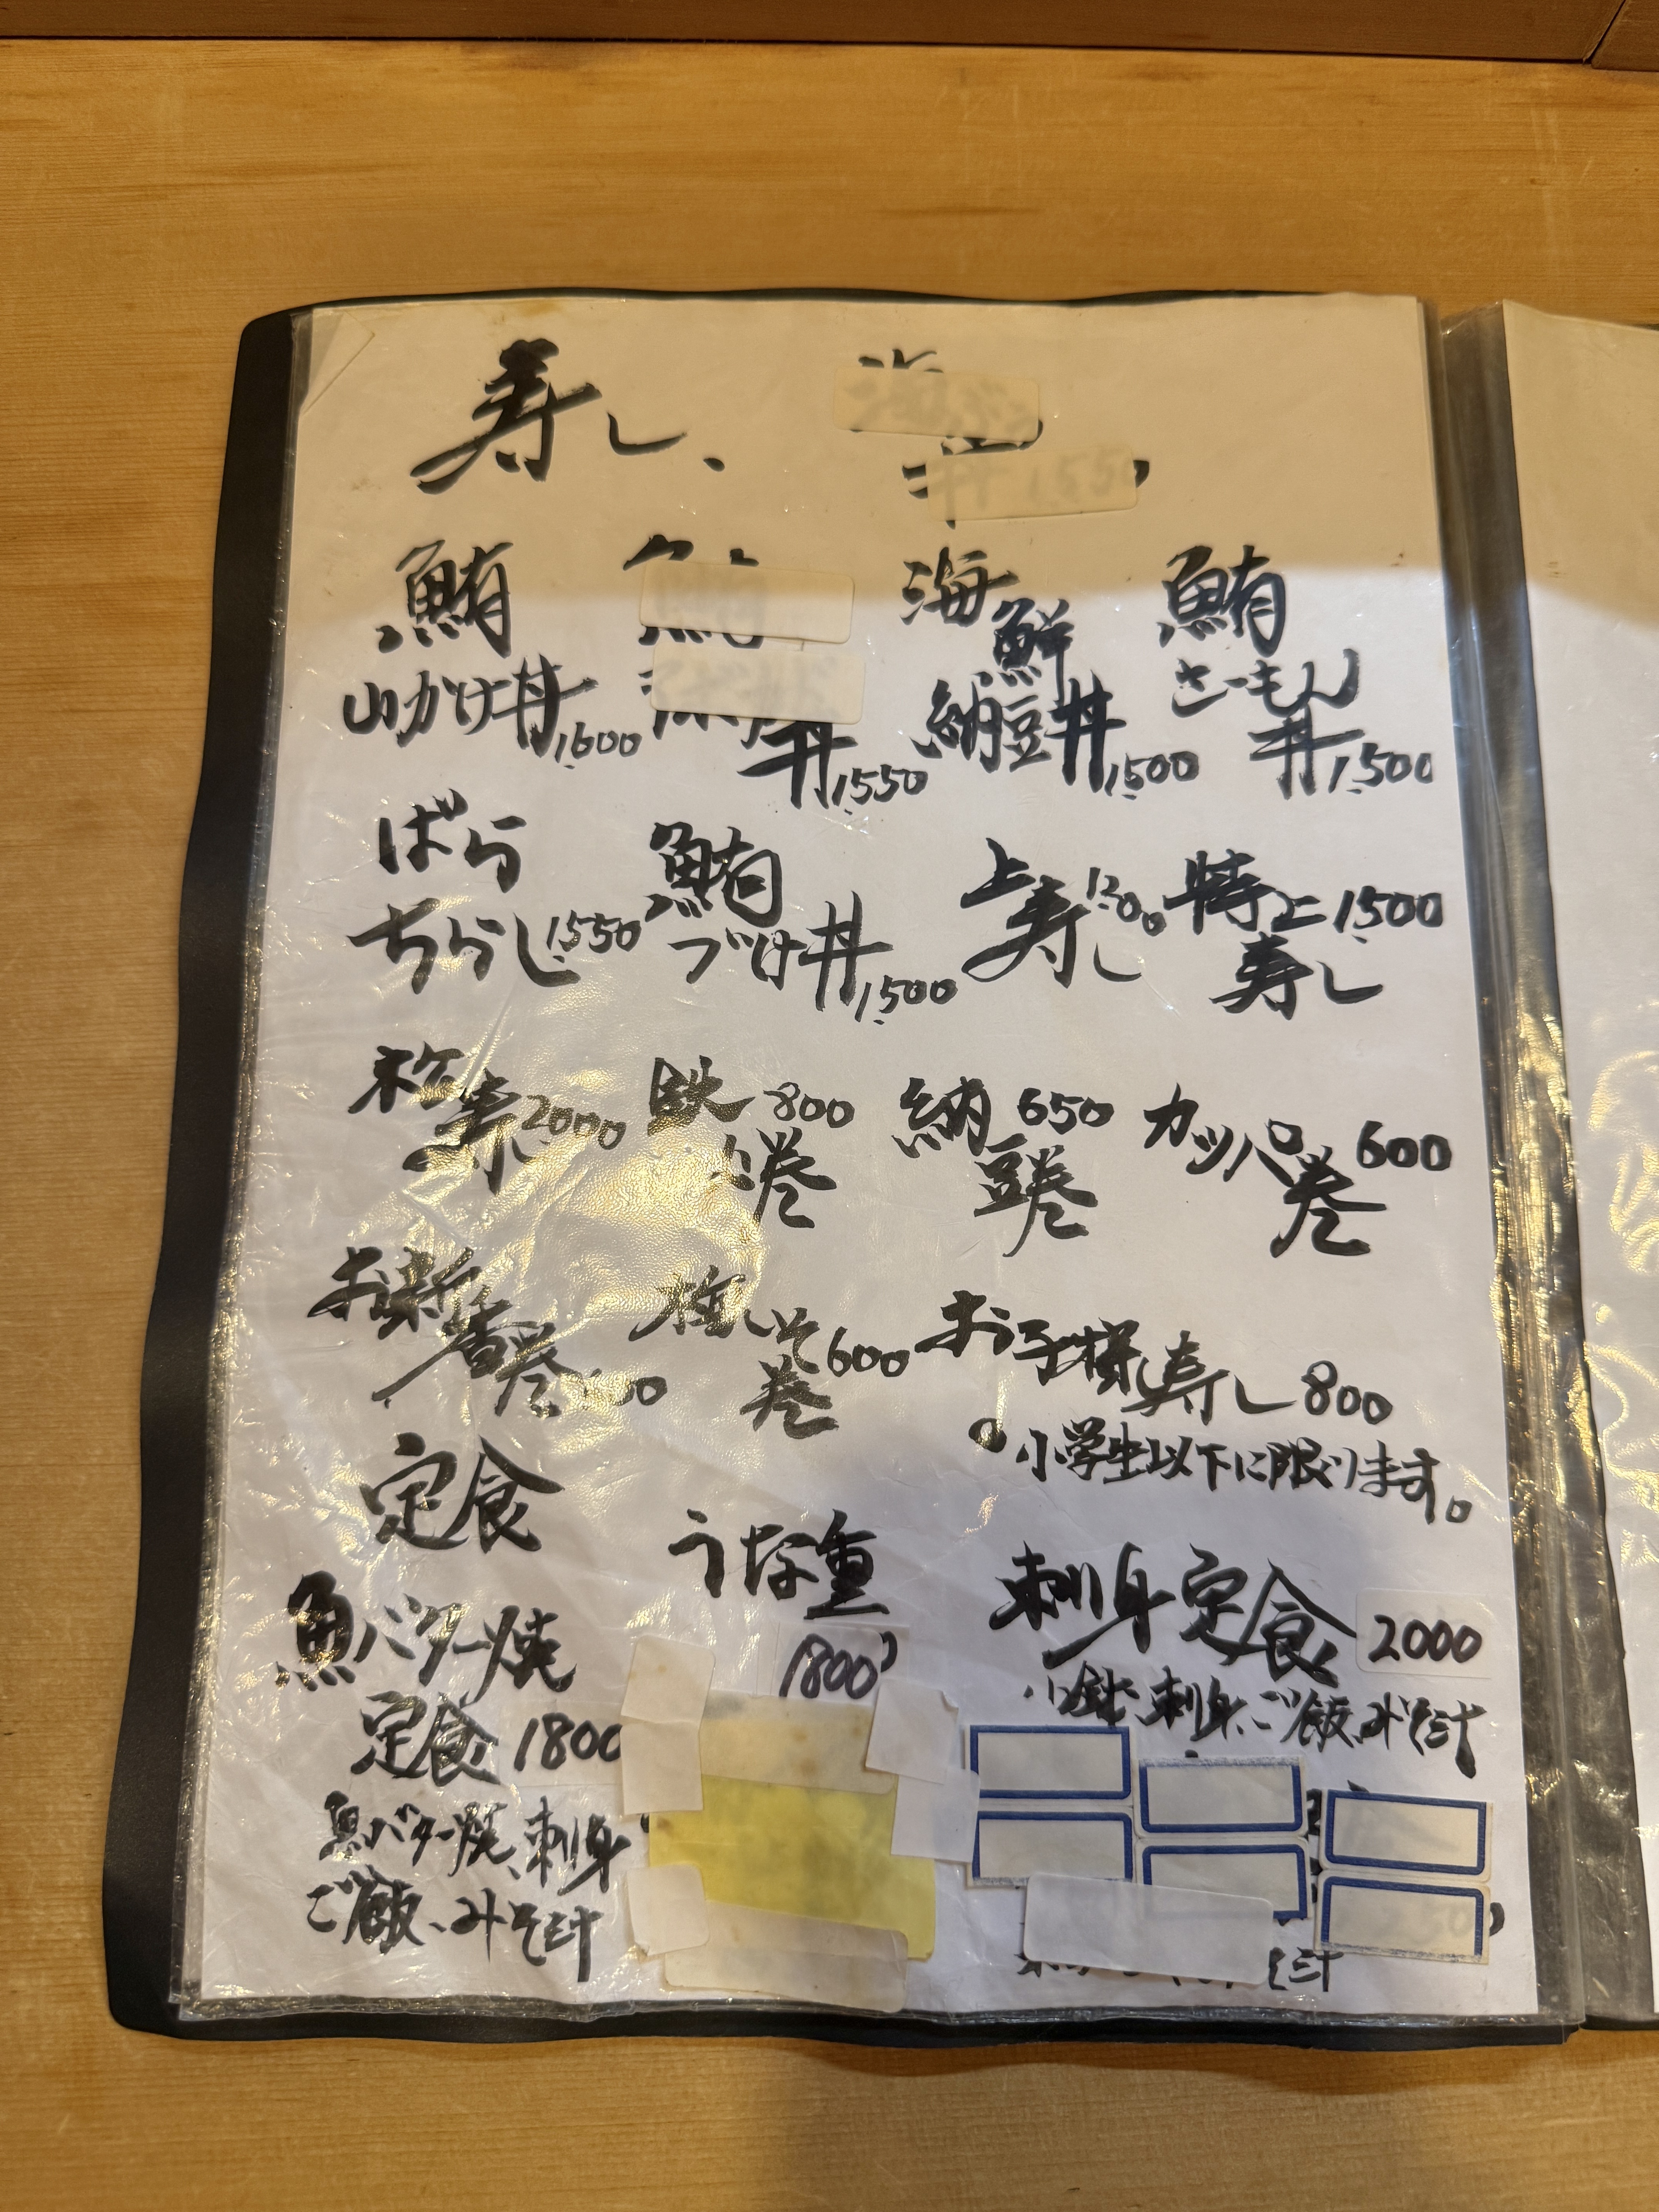 寿し、
鮪
山かけ丼 1,600
丼 1,550
海鮮
納豆丼 1,500
鮪
さーもん
丼 1,500
ばら
ちらし 1,550
鮪
づけ丼 1,500
上寿し 1,200
特上 1,500
寿し
松寿し 2,000
鉄火巻 800
納豆巻 650
カッパ巻 600
お新香巻
梅しそ
巻 600
お子様寿し 800
○小学生以下に限ります。
定食
魚バター焼
定食 1800
魚バター焼、刺身
ご飯、みそ汁
うな重
1800
刺身定食 2000
小鉢、刺身、ご飯、みそ汁